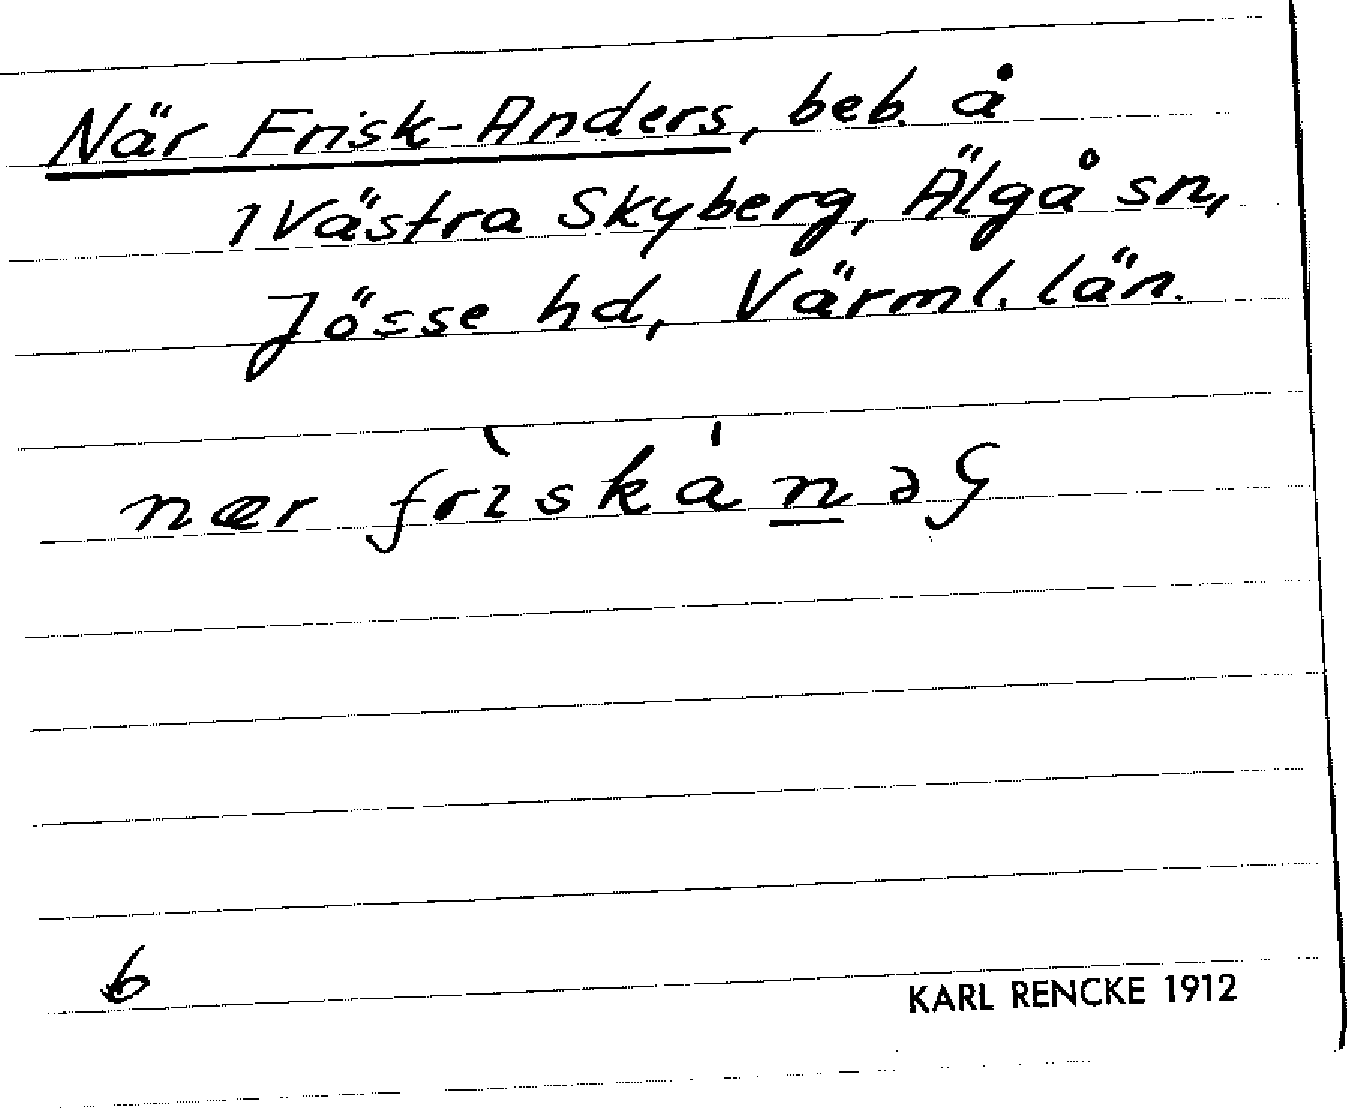 När Frisk-Anders, beb. å
1 Västra Skyberg, Älgå sn,
Jösse hd, Värml. län.
nær frìskánəş
b
KARL RENCKE 1912